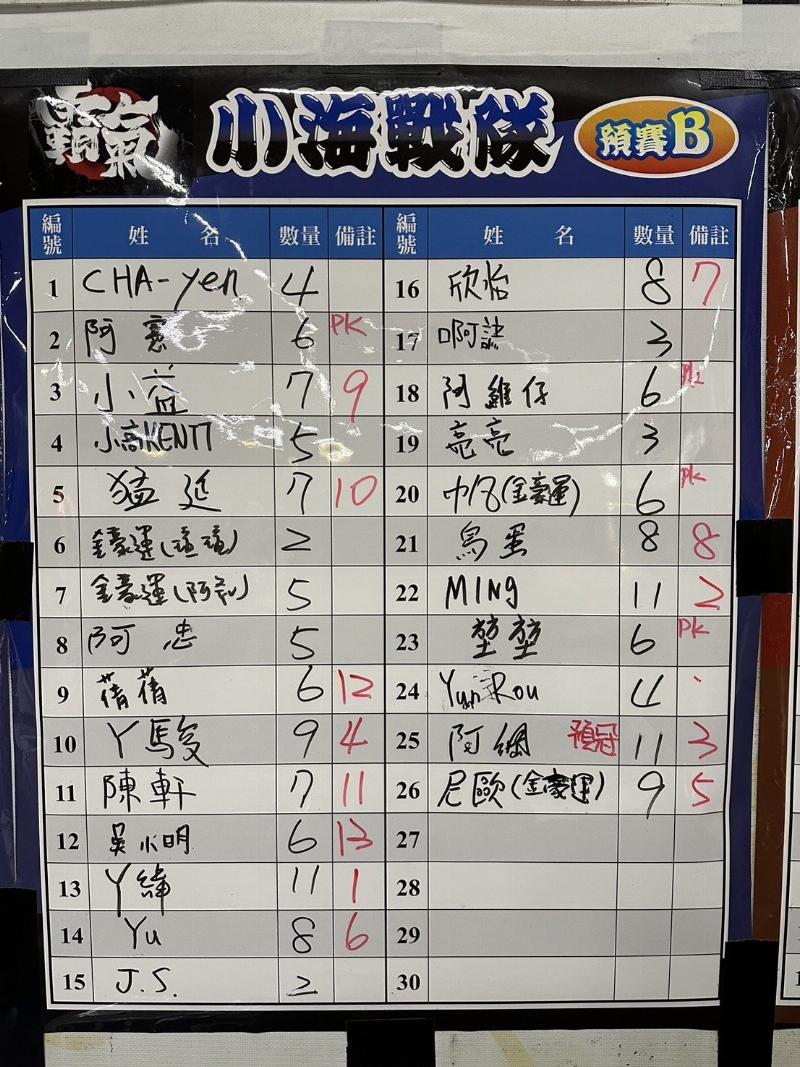 霸氣 小海戰隊 預賽B
編號 姓名 數量 備註
1 CHA-Yen 4
2 阿寰 6 PK
3 小益 7 9
4 小高KENTT 5
5 猛延 7 10
6 金豪運(瑄瑄) 2
7 金豪運(阿利) 5
8 阿忠 5
9 蒨蒨 6 12
10 丫駿 9 4
11 陳軒 7 11
12 吳小明 6 13
13 丫緯 11 1
14 Yu 8 6
15 J.S. 2
編號 姓名 數量 備註
16 欣怡 8 7
17 啊誌 3
18 阿維仔 6
19 亮亮 3
20 (金豪運) 6 PK
21 鳥蛋 8 8
22 MING 11 2
23 堃堃 6 PK
24 Yun Rou 4
25 阿網 預冠 11 3
26 尼歐(金豪運) 9 5
27
28
29
30